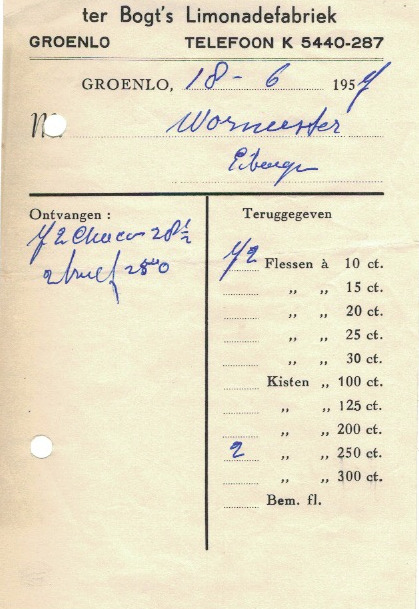 ter Bogt's Limonadefabriek
GROENLO TELEFOON K 5440-287
GROENLO, 18 - 6 1957
M
Wormeester
Eibergen
Ontvangen :
72 Choco 28½
2 25.0
Teruggegeven
72 Flessen à 10 ct.
„ „ 15 ct.
„ „ 20 ct.
„ „ 25 ct.
„ „ 30 ct.
Kisten „ 100 ct.
„ „ 125 ct.
„ „ 200 ct.
2 „ „ 250 ct.
„ „ 300 ct.
Bem. fl.